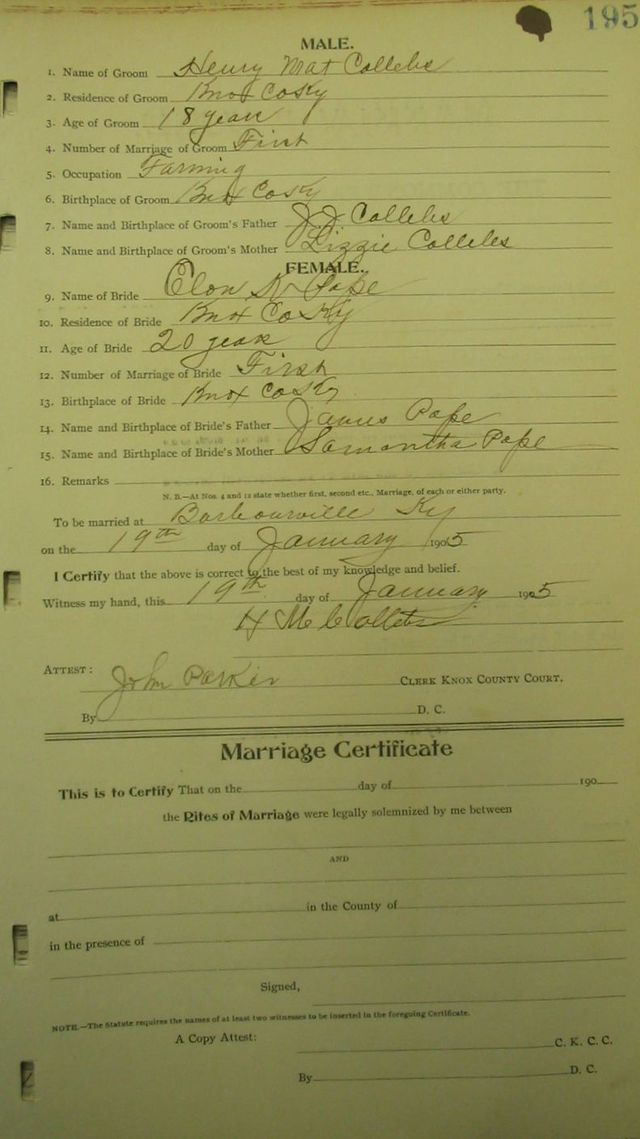 195
MALE.
1. Name of Groom Henry Mat Collebs
2. Residence of Groom Knox Co Ky
3. Age of Groom 18 years
4. Number of Marriage of Groom First
5. Occupation Farming
6. Birthplace of Groom Knox Co Ky
7. Name and Birthplace of Groom's Father J. J Collebs
8. Name and Birthplace of Groom's Mother Lizzie Collebs
FEMALE.
9. Name of Bride Pope
10. Residence of Bride Knox Co Ky
11. Age of Bride 20 years
12. Number of Marriage of Bride First
13. Birthplace of Bride Knox Co Ky
14. Name and Birthplace of Bride's Father James Pope
15. Name and Birthplace of Bride's Mother Samantha Pope
16. Remarks
N. B.—At Nos. 4 and 12 state whether first, second etc., Marriage, of each or either party.
To be married at Barbourville Ky
on the 19th day of January 1905
I Certify that the above is correct to the best of my knowledge and belief.
Witness my hand, this 19th day of January 1905
H M
ATTEST: John Parker CLERK KNOX COUNTY COURT.
By D. C.
Marriage Certificate
This is to Certify That on the day of 190
the Rites of Marriage were legally solemnized by me between
AND
at in the County of
in the presence of
Signed,
NOTE.—The Statute requires the names of at least two witnesses to be inserted in the foregoing Certificate.
A Copy Attest: C. K. C. C.
By D. C.